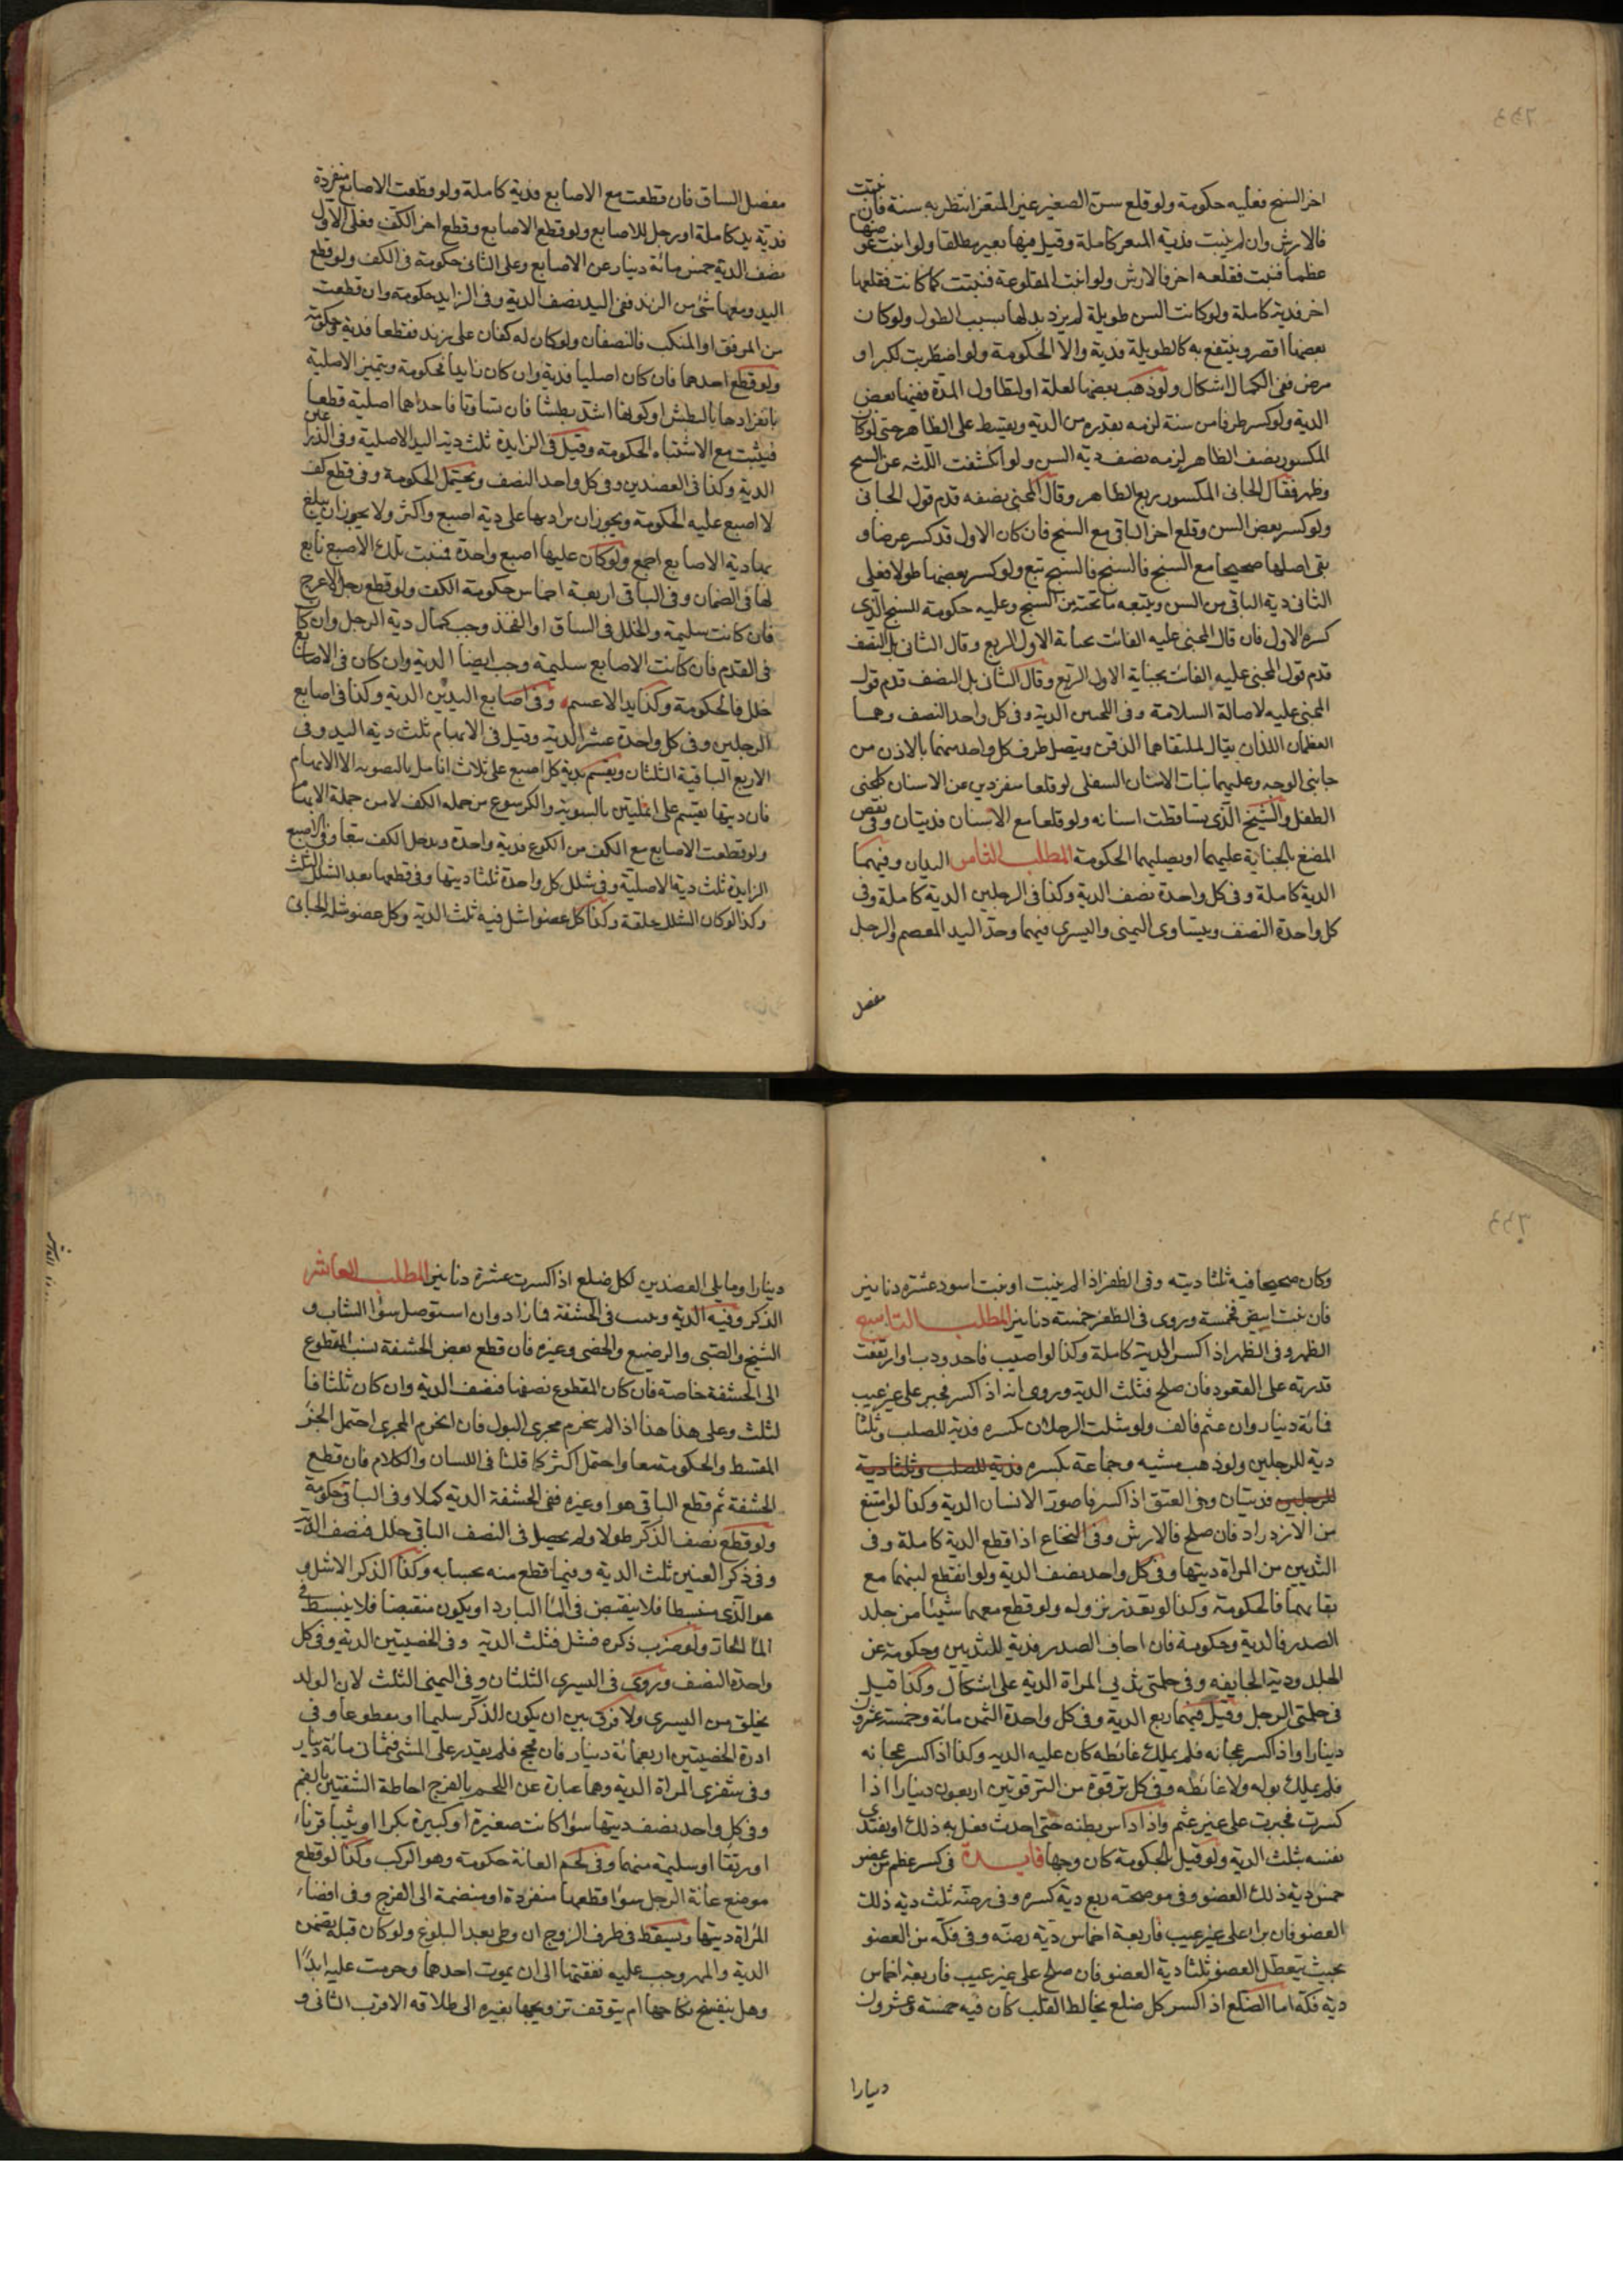 اخر السنخ فعليه حكومة ولو قلع سن الصغير غير المثغر انتظر به سنة فان نبتت
فالارش وان لم ينبت فدية المثغر كاملة وقيل فيها بعير مطلقا ولو انبت عوضها
عظما فنبت فقلعه اخر فالارش ولو انبت المقلوعة فنبتت كما كانت فقلعها
اخر فدية كاملة ولو كانت السن طويلة لم يزد بدلها بسبب الطول ولو كان
بعضها اقصر وينتفع به كالطويلة فدية والا الحكومة ولو اضطربت لكبر او
مرض ففي الكمال اشكال ولو ذهب بعضها لعلة او لتطاول المدة ففيها بعض
الدية ولو كسر طرفا من سنة لزمه بقدره من الدية ويقسط على الظاهر حتى لو كان
المكسور نصف الظاهر لزمه نصف دية السن ولو انكشفت اللثه عن السنخ
وظهر فقال الجاني المكسور ربع الظاهر وقال المجني نصفه قدم قول الجاني
ولو كسر بعض السن وقلع اخر الباقي مع السنخ فان كان الاول قد كسر عرضا و
بقي اصلها صحيحا مع السنخ فالسنخ تبع ولو كسر بعضها طولا فعلى
الثاني دية الباقي من السن ويتبعه ما تحته من السنخ وعليه حكومة السنخ الذي
كسره الاول فان قال المجني عليه الفائت بجناية الاول الربع وقال الثاني بل النصف
قدم قول المجني عليه الفائت بجناية الاول الربع وقال الثاني بل النصف قدم قول
المجني عليه لاصالة السلامة وفي اللحيين الدية وفي كل واحد النصف وهما
العظمان اللذان يقال لملتقاهما الذقن ويتصل طرف كل واحد منهما بالاذن من
جانبي الوجه وعليهما نبات الاسنان السفلى لو قلعا منفردين عن الاسنان كلحيي
الطفل والشيخ الذي تساقطت اسنانه ولو قلعا مع الاسنان فديتان وفي نقص
المضغ بالجناية عليهما او يصليهما الحكومة المطلب الثامن اليدان وفيهما
الدية كاملة وفي كل واحدة نصف الدية وكذا في الرجلين الدية كاملة وفي
كل واحدة النصف ويتساوى اليمنى واليسرى فيهما وحد اليد المعصم والرجل
مفصل
مفصل الساق فان قطعت مع الاصابع فدية كاملة ولو قطعت الاصابع منفردة
فدية يد كاملة او رجل للاصابع ولو قطع الاصابع وقطع اخر الكف فعلى الاول
نصف الدية خمس مائة دينار عن الاصابع وعلى الثاني حكومة في الكف ولو قطع
اليد ومعها شيء من الزند ففي اليد نصف الدية وفي الزايد حكومة وان قطعت
من المرفق او المنكب فالنصفان ولو كان له كفان على زند فقطعا فدية وحكومة
ولو قطع احدهما فان كان اصليا فدية وان كان زايدا فحكومة ويتميز الاصلية
بانفرادها بالبطش او كونها اشد بطشا فان تساوتا فاحداهما اصلية قطعا
فيثبت مع الاشتباه الحكومة وقيل في الزايدة ثلث دية اليد الاصلية وفي الذراعين
الدية وكذا في العضدين وفي كل واحد النصف ويحتمل الحكومة وفي قطع كف
لا اصبع عليه الحكومة ويجوز ان يزاد بها على دية اصبع واكثر ولا يجوز ان يبلغ
بها دية الاصابع اجمع ولو كان عليها اصبع واحدة فنبت تلك الاصبع تابع
لها في الضمان وفي الباقي اربعة اخماس حكومة الكف ولو قطع رجل الاعرج
فان كانت سليمة والخلل في الساق او الفخذ وجب كمال دية الرجل وان كان
في القدم فان كانت الاصابع سليمة وجب ايضا الدية وان كان في الاصابع
خلل فالحكومة وكذا يد الاعسم وفي اصابع اليدين الدية وكذا في اصابع
الرجلين وفي كل واحدة عشر الدية وقيل في الابهام ثلث دية اليد وفي
الاربع الباقية الثلثان ويقسم دية كل اصبع على ثلاث انامل بالسوية الا الابهام
فان ديتها تقسم على انملتين بالسوية والكرسوع من جملة الكف لا من جملة الابهام
ولو قطعت الاصابع مع الكف من الكوع فدية واحدة ويدخل الكف تبعا وفي الاصبع
الزايدة ثلث دية الاصلية وفي شلل كل واحدة ثلثا ديتها وفي قطعها بعد الشلل الثلث
وكذا لو كان الشلل خلقة وكذا كل عضو اشل فيه ثلث الدية وكل عضو شله الجاني
وكان صحيحا فيه ثلثا ديته وفي الظفر اذا لم ينبت او نبت اسود عشرة دنانير
فان نبت ابيض فخمسة وروى في الظفر خمسة دنانير المطلب التاسع
الظهر وفي الظهر اذا كسر الدية كاملة وكذا لو اصيب فاحدودب او ارتفعت
قدرته على القعود فان صلح فثلث الدية وروى انه اذا كسر فجبر على غير عيب
فمائة دينار وان عثم فالف ولو شلت الرجلان بكسره فدية للصلب وثلثا
دية للرجلين ولو ذهب مشيه وجماعة بكسره فدية للصلب وثلثا دية
للرجلين فديتان وفي العنق اذا كسر فاصور الانسان الدية وكذا لو امتنع
من الازدراد فان صلح فالارش وفي النخاع اذا قطع الدية كاملة وفي
الثديين من المراة ديتها وفي كل واحد نصف الدية ولو انقطع لبنهما مع
بقائهما فالحكومة وكذا لو تعذر نزوله ولو قطع معهما شيئا من جلد
الصدر فالدية وحكومة فان اجاف الصدر فدية للثديين وحكومة عن
الجلد ودية الجايفة وفي حلمتي ثديي المراة الدية على اشكال وكذا قيل
في حلمتي الرجل وقيل فيهما ربع الدية وفي كل واحدة الثمن مائة وخمسة وعشرون
دينارا واذا كسر عجانه فلم يملك غائطه كان عليه الديه وكذا اذا كسر عجانه
فلم يملك بوله ولا غائطه وفي كل ترقوة من الترقوتين اربعون دينارا اذا
كسرت فجبرت على غير عثم واذا داس بطنه حتى احدث فعل به ذلك او يفتدي
نفسه بثلث الدية ولو قيل بالحكومة كان وجها فايدة في كسر عظم من عضو
خمس دية ذلك العضو وفي موضحته ربع دية كسره وفي رضه ثلث دية ذلك
العضو فان برا على غير عيب فاربعة اخماس دية رضه وفي فكه من العضو
بحيث يتعطل العضو ثلثا دية العضو فان صلح على غير عيب فاربعة اخماس
دية فكه اما الضلع اذا كسر كل ضلع يخالط القلب كان فيه خمسة وعشرون
دينارا
دينارا وما يلي العضدين لكل ضلع اذا كسرت عشرة دنانير المطلب العاشر
الذكر وفيه الدية ويجب في الحشفة فما زاد وان استوصل سواء الشاب و
الشيخ والصبي والرضيع والخصي وغيره فان قطع بعض الحشفة نسب المقطوع
الى الحشفة خاصة فان كان المقطوع نصفها فنصف الدية وان كان ثلثا فا
لثلث وعلى هذا هذا اذا لم ينخرم مجرى البول فان انخرم المجرى احتمل الجزء
المقسط والحكومة معا واحتمل اكثر كما قلنا في اللسان والكلام فان قطع
الحشفة ثم قطع الباقي هو او غيره ففي الحشفة الدية كملا وفي الباقي حكومة
ولو قطع نصف الذكر طولا ولم يحصل في النصف الباقي خلل فنصف الدية
وفي ذكر العنين ثلث الدية وفيما قطع منه بحسابه وكذا الذكر الاشل و
هو الذي منبسطا فلا ينقبض في الماء البارد او يكون منقبضا فلا ينبسط في
الماء الحار ولو ضرب ذكره فشل فثلث الدية وفي الخصيتين الدية وفي كل
واحدة النصف وروى في اليسرى الثلثان وفي اليمنى الثلث لان الولد
يخلق من اليسرى ولا فرق بين ان يكون الذكر سليما او مقطوعا وفي
ادرة الخصيتين اربعمائة دينار فان فحج فلم يقدر على المشي فثمان مائة دينار
وفي شفرى المراة الدية وهما عبارة عن اللحم بالفرج احاطة الشفتين بالفم
وفي كل واحد نصف ديتها سواء كانت صغيرة او كبيرة بكرا او ثيبا قرناء
او رتقا او سليمة منهما وفي لحم العانة حكومة وهو الركب وكذا لو قطع
موضع عانة الرجل سواء قطعها منفردة او منضمة الى الفرج وفي افضاء
المراة ديتها ويسقط في طرف الزوج ان وطى بعد البلوغ ولو كان قبله يضمن
الدية والمهر وجب عليه نفقتها الى ان يموت احدهما وحرمت عليه ابدا
وهل ينفسخ نكاحها ام يتوقف تزويجها بغيره الى طلاقه الاقرب الثاني و